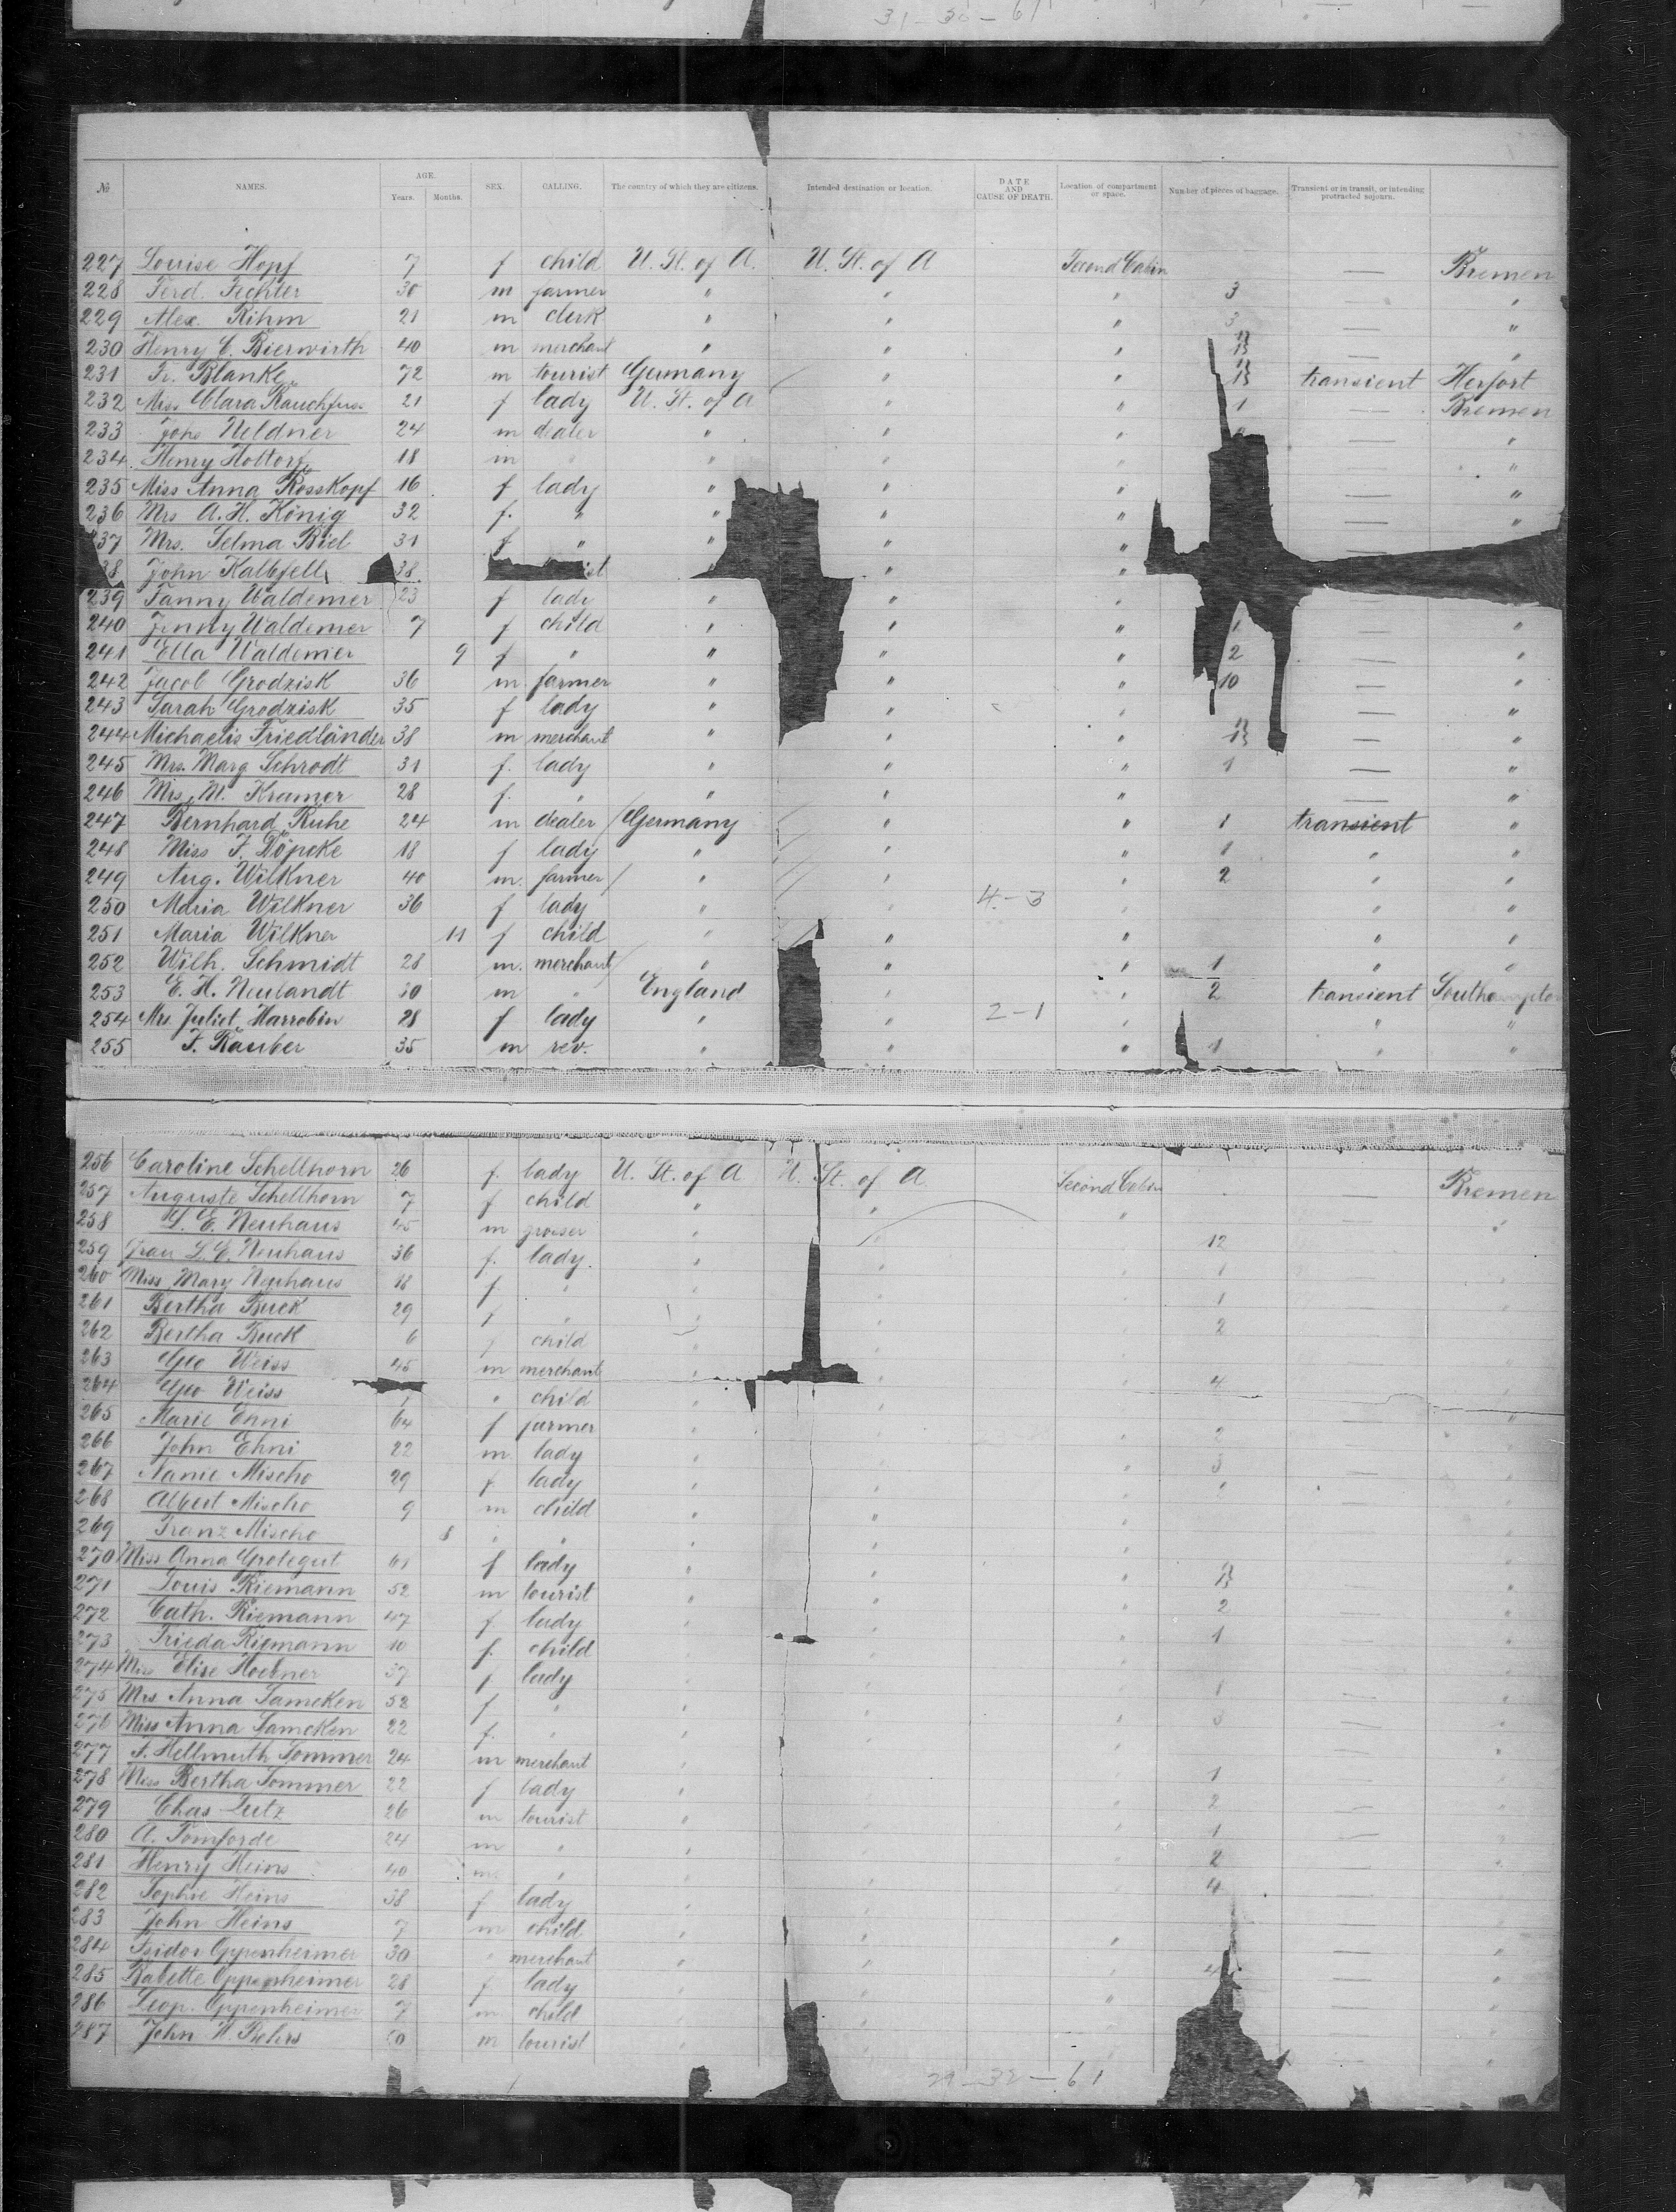 31-30-61
№ NAMES. AGE. Years. Months. SEX. CALLING. The country of which they are citizens. Intended destination or location. DATE AND CAUSE OF DEATH. Location of compartment or space. Number of pieces of baggage. Transient or in transit, or intending protracted sojourn.
227 Louise Hopf 7 f child U. St. of A. U. St. of A Second Cabin — Bremen
228 Ferd. Fechter 30 m farmer " " " 3 — "
229 Alex. Rihm 21 m clerk " " " 3 — "
230 Henry C. Bierwirth 40 m merchant " " " — "
231 Fr. Blanke 72 m tourist Germany " " transient Herfort
232 Miss Clara Rauchfuss 21 f lady U. St. of A " " 1 — Bremen
233 Johs Neldner 24 m dealer " " " — "
234 Henry Holtorf 18 m " " " " — "
235 Miss Anna Rosskopf 16 f lady " " " — "
236 Mrs A. H. König 32 f. " " " " — "
37 Mrs. Selma Biel 31 f " " " " —
38 John Kalbfell 38 " " "
239 Fanny Waldemer 23 f lady " " —
240 Jenny Waldemer 7 f child " " " 1 — "
241 Ella Waldemer 9 f " " " " 2 — "
242 Jacob Grodzisk 36 m. farmer " " " 10 — "
243 Sarah Grodzisk 35 f lady " " " — "
244 Michaelis Friedländer 38 m merchant " " " — "
245 Mrs. Marg Schrodt 31 f. lady " " " 1 — "
246 Mrs. M. Kramer 28 f. " " " " — "
247 Bernhard Ruhe 24 m dealer Germany " " 1 transient "
248 Miss F. Döpcke 18 f lady " " " 1 " "
249 Aug. Wilkner 40 m. farmer " " " 2 " "
250 Maria Wilkner 36 f lady " " 4-3 " " "
251 Maria Wilkner 11 f child " " " " "
252 Wilh. Schmidt 28 m. merchant " " " 1 " "
253 E. H. Neulandt 30 m " England " " 2 transient
254 Mrs. Juliet Harrobin 28 f lady " " 2-1 " " "
255 F. Rauber 35 m rev. " " " 1 " "
256 Caroline Schellhorn 26 f. lady U. St. of A U. St. of A Second Cabin — Bremen
257 Auguste Schellhorn 7 f child " " " — "
258 L. E. Neuhaus 45 m groser " " 12
259 Frau L. E. Neuhaus 36 f. lady. " " 1
260 Miss Mary Neuhaus 18 f " " " 1
261 Bertha Buck 29 f " " 2
262 Bertha Buck 6 f child " "
263 Geo Weiss 45 m merchant " " 4
264 Geo Weiss " child " "
265 Marie Ehni 64 f farmer " " 2
266 John Ehni 22 m lady " " 3
267 Nanie Mischo 29 f lady " " 2
268 Albert Mischo 9 m child " "
269 Franz Mischo 8 " " " "
270 Miss Anna Grotegut 61 f lady " "
271 Louis Riemann 52 m tourist " " 2
272 Cath. Riemann 47 f lady " " 1
273 Frieda Riemann 10 f. child " "
274 Miss Elise Hoebner 37 f lady " " 1
275 Mrs. Anna Samcken 52 f " " " 3
276 Miss Anna Samcken 22 f. " " "
277 F. Hellmuth Sommer 24 m merchant " " 1
278 Miss Bertha Sommer 22 f lady " " 2
279 Chas Lutz 26 m tourist " " 1
280 A. Tomforde 24 m " " " 2
281 Henry Heins 40 m " " " 4
282 Sophie Heins 38 f lady " "
283 John Heins 7 m child " "
284 Isidor Oppenheimer 30 " merchant " " 4
285 Babette Oppenheimer 28 f lady " "
286 Leop. Oppenheimer 7 m child " "
287 John H. m tourist " "
29-32-61